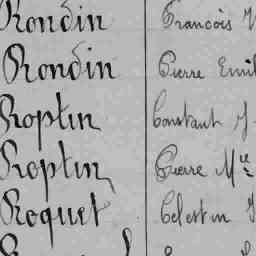 Rondin François
Rondin Pierre Emil
Roptin Constant J.
Roptin Pierre Mie
Roquet Celestin